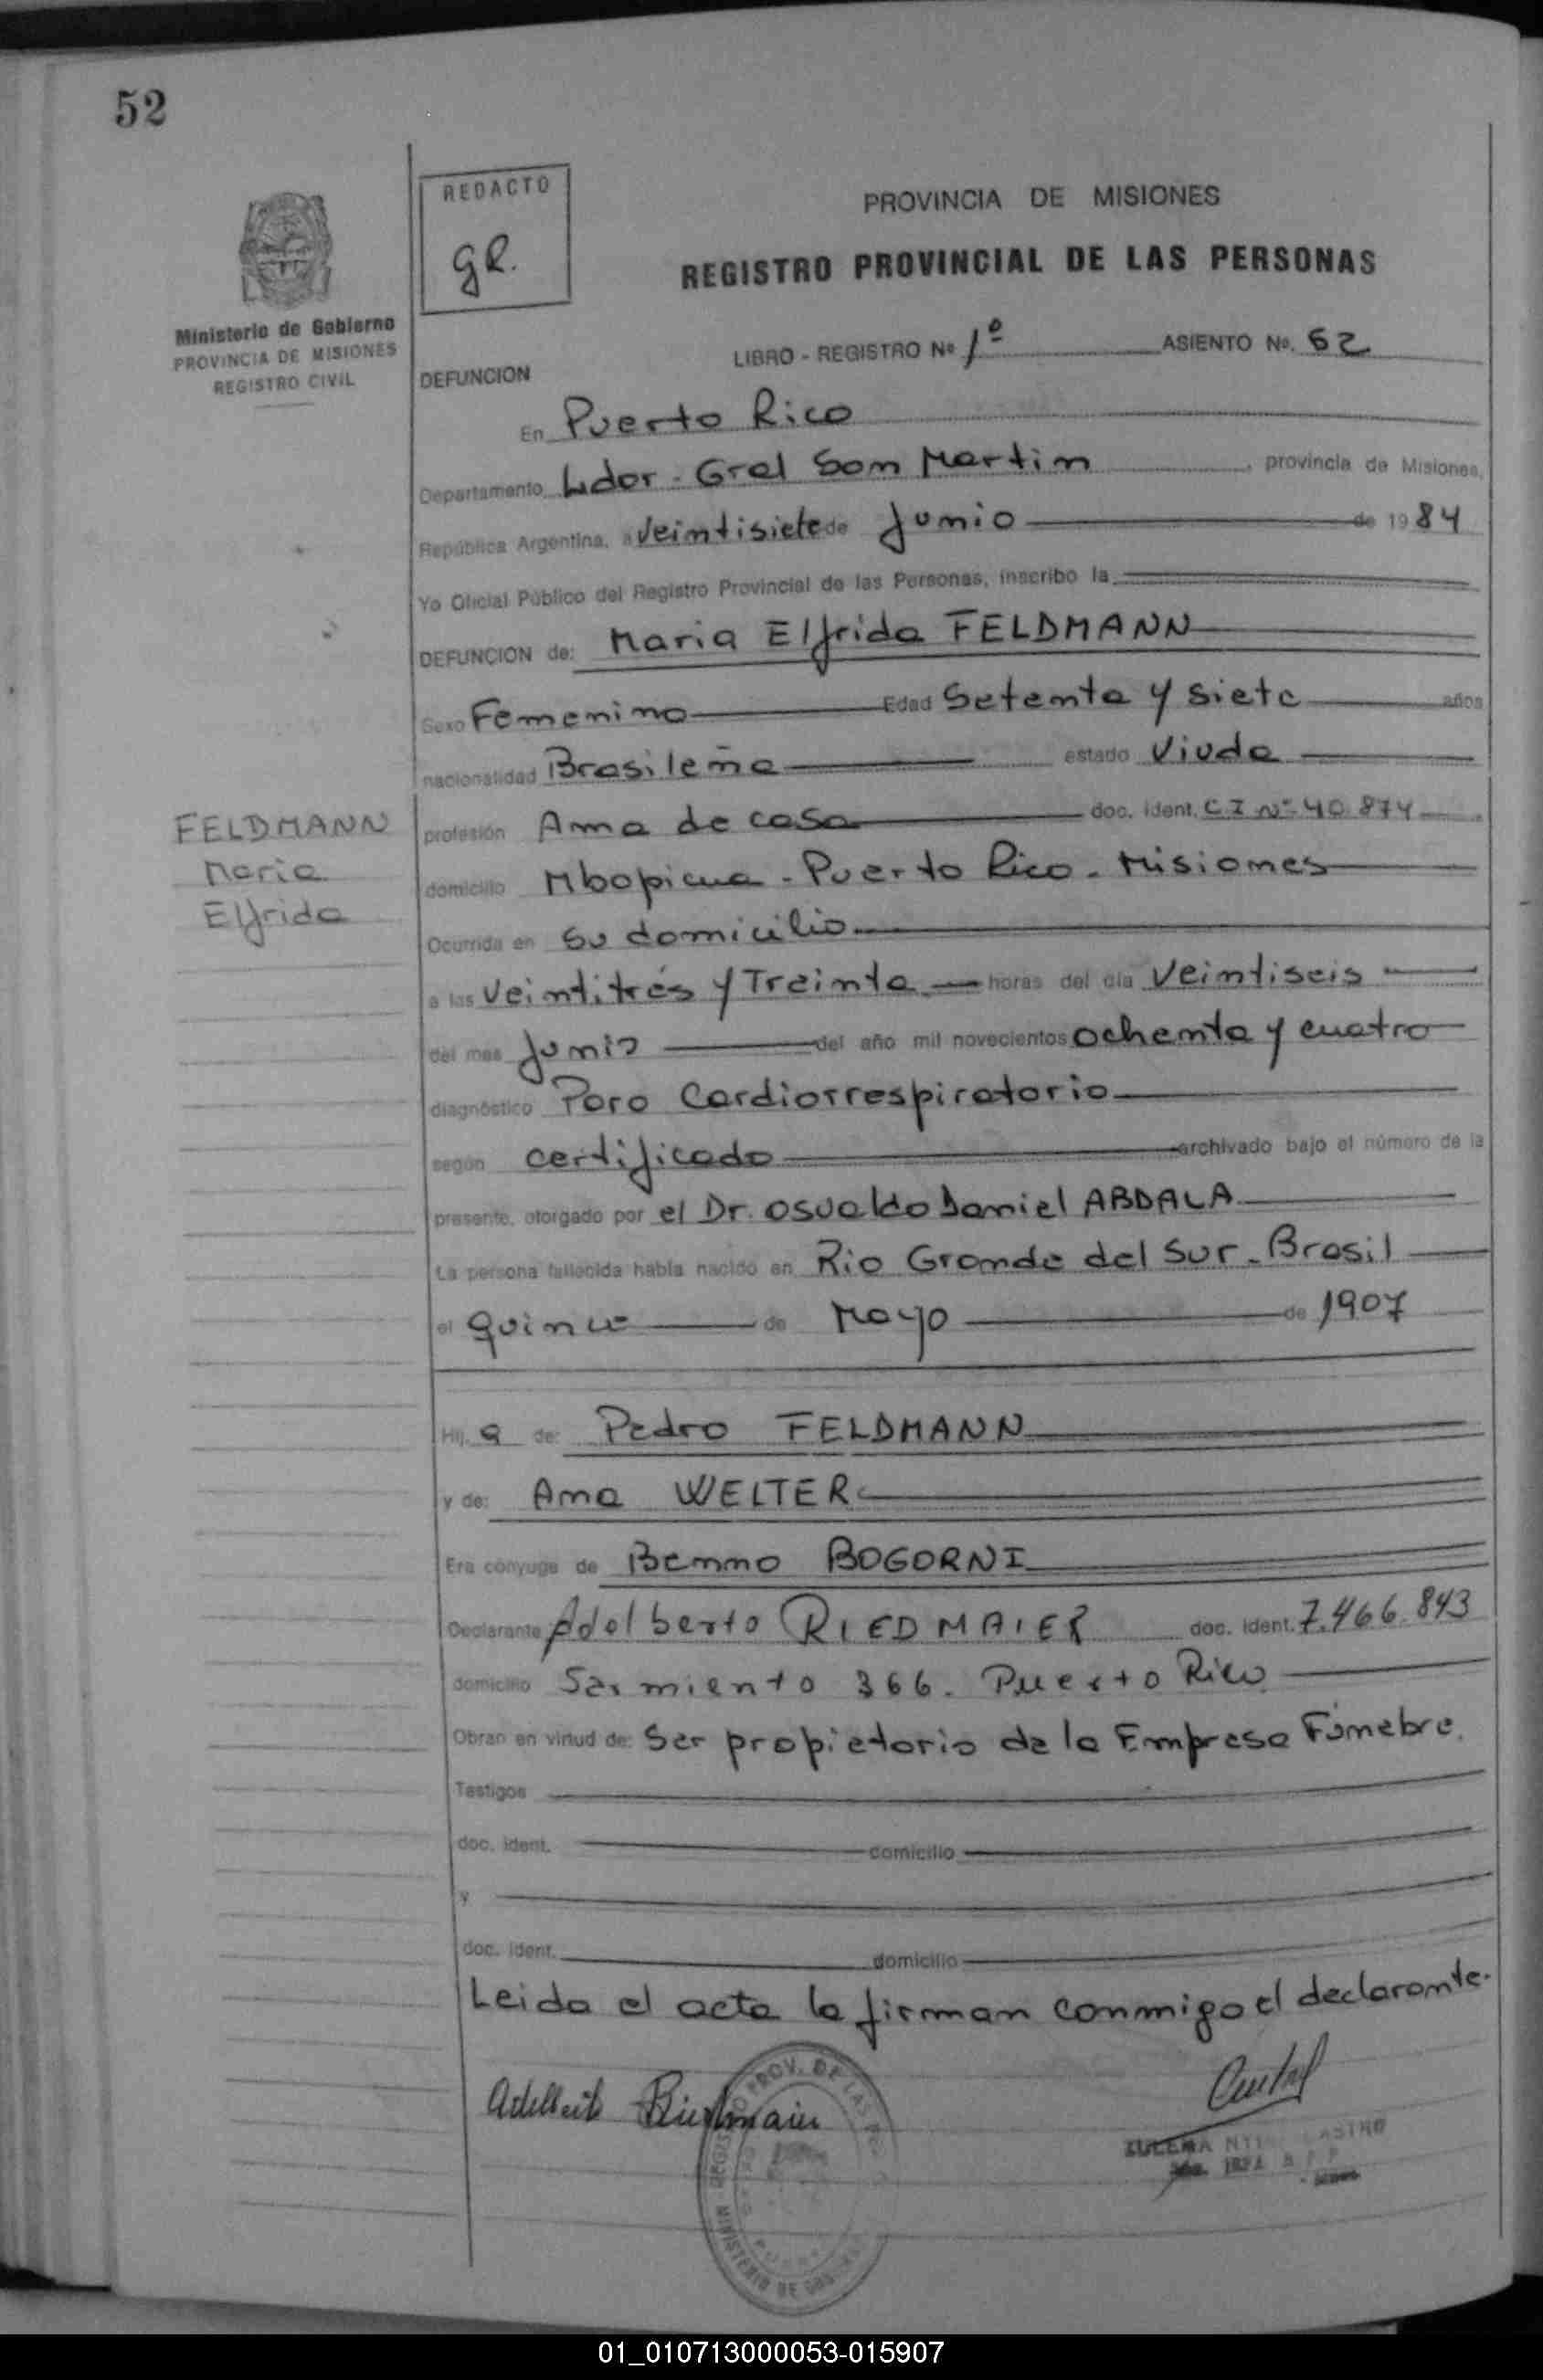 52
REDACTO
gR.
PROVINCIA DE MISIONES
REGISTRO PROVINCIAL DE LAS PERSONAS
Ministerio de Gobierno
PROVINCIA DE MISIONES
REGISTRO CIVIL
LIBRO - REGISTRO Nº 1º ASIENTO Nº. 52
DEFUNCION
En Puerto Rico
Departamento Ldor. Gral San Martin, provincia de Misiones,
República Argentina, a veintisiete de Junio de 1984
Yo Oficial Público del Registro Provincial de las Personas, inscribo la
DEFUNCION de: Maria Elfrida FELDMANN
Sexo Femenino Edad Setenta y siete años
nacionalidad Brasileña estado Viuda
FELDMANN
Maria
Elfrida
profesión Ama de casa doc. ident. C I Nº 40.874
domicilio Mbopicua - Puerto Rico - Misiones
Ocurrida en su domicilio
a las veintitrés y Treinta horas del día veintiseis
del mes Junio del año mil novecientos ochenta y cuatro
diagnóstico Paro Cardiorrespiratorio
según certificado archivado bajo el número de la
presente, otorgado por el Dr. Osvaldo Daniel ABDALA
La persona fallecida había nacido en Rio Grande del Sur - Brasil
el quince de Mayo de 1907
Hij a de: Pedro FELDMANN
y de: Ana WELTER
Era cónyuge de Benno BOGORNI
Declarante Adelberto RIEDMAIER doc. ident. 7.466.843
domicilio Sarmiento 366. Puerto Rico
Obran en virtud de: Ser propietario de la Empresa Fúnebre.
Testigos
doc. ident. domicilio
y
doc. ident. domicilio
Leida el acta la firman conmigo el declarante.
Adelberto Riedmaier
REGISTRO PROV. DE LAS
MINISTERIO DE
ZULEMA
01_010713000053-015907